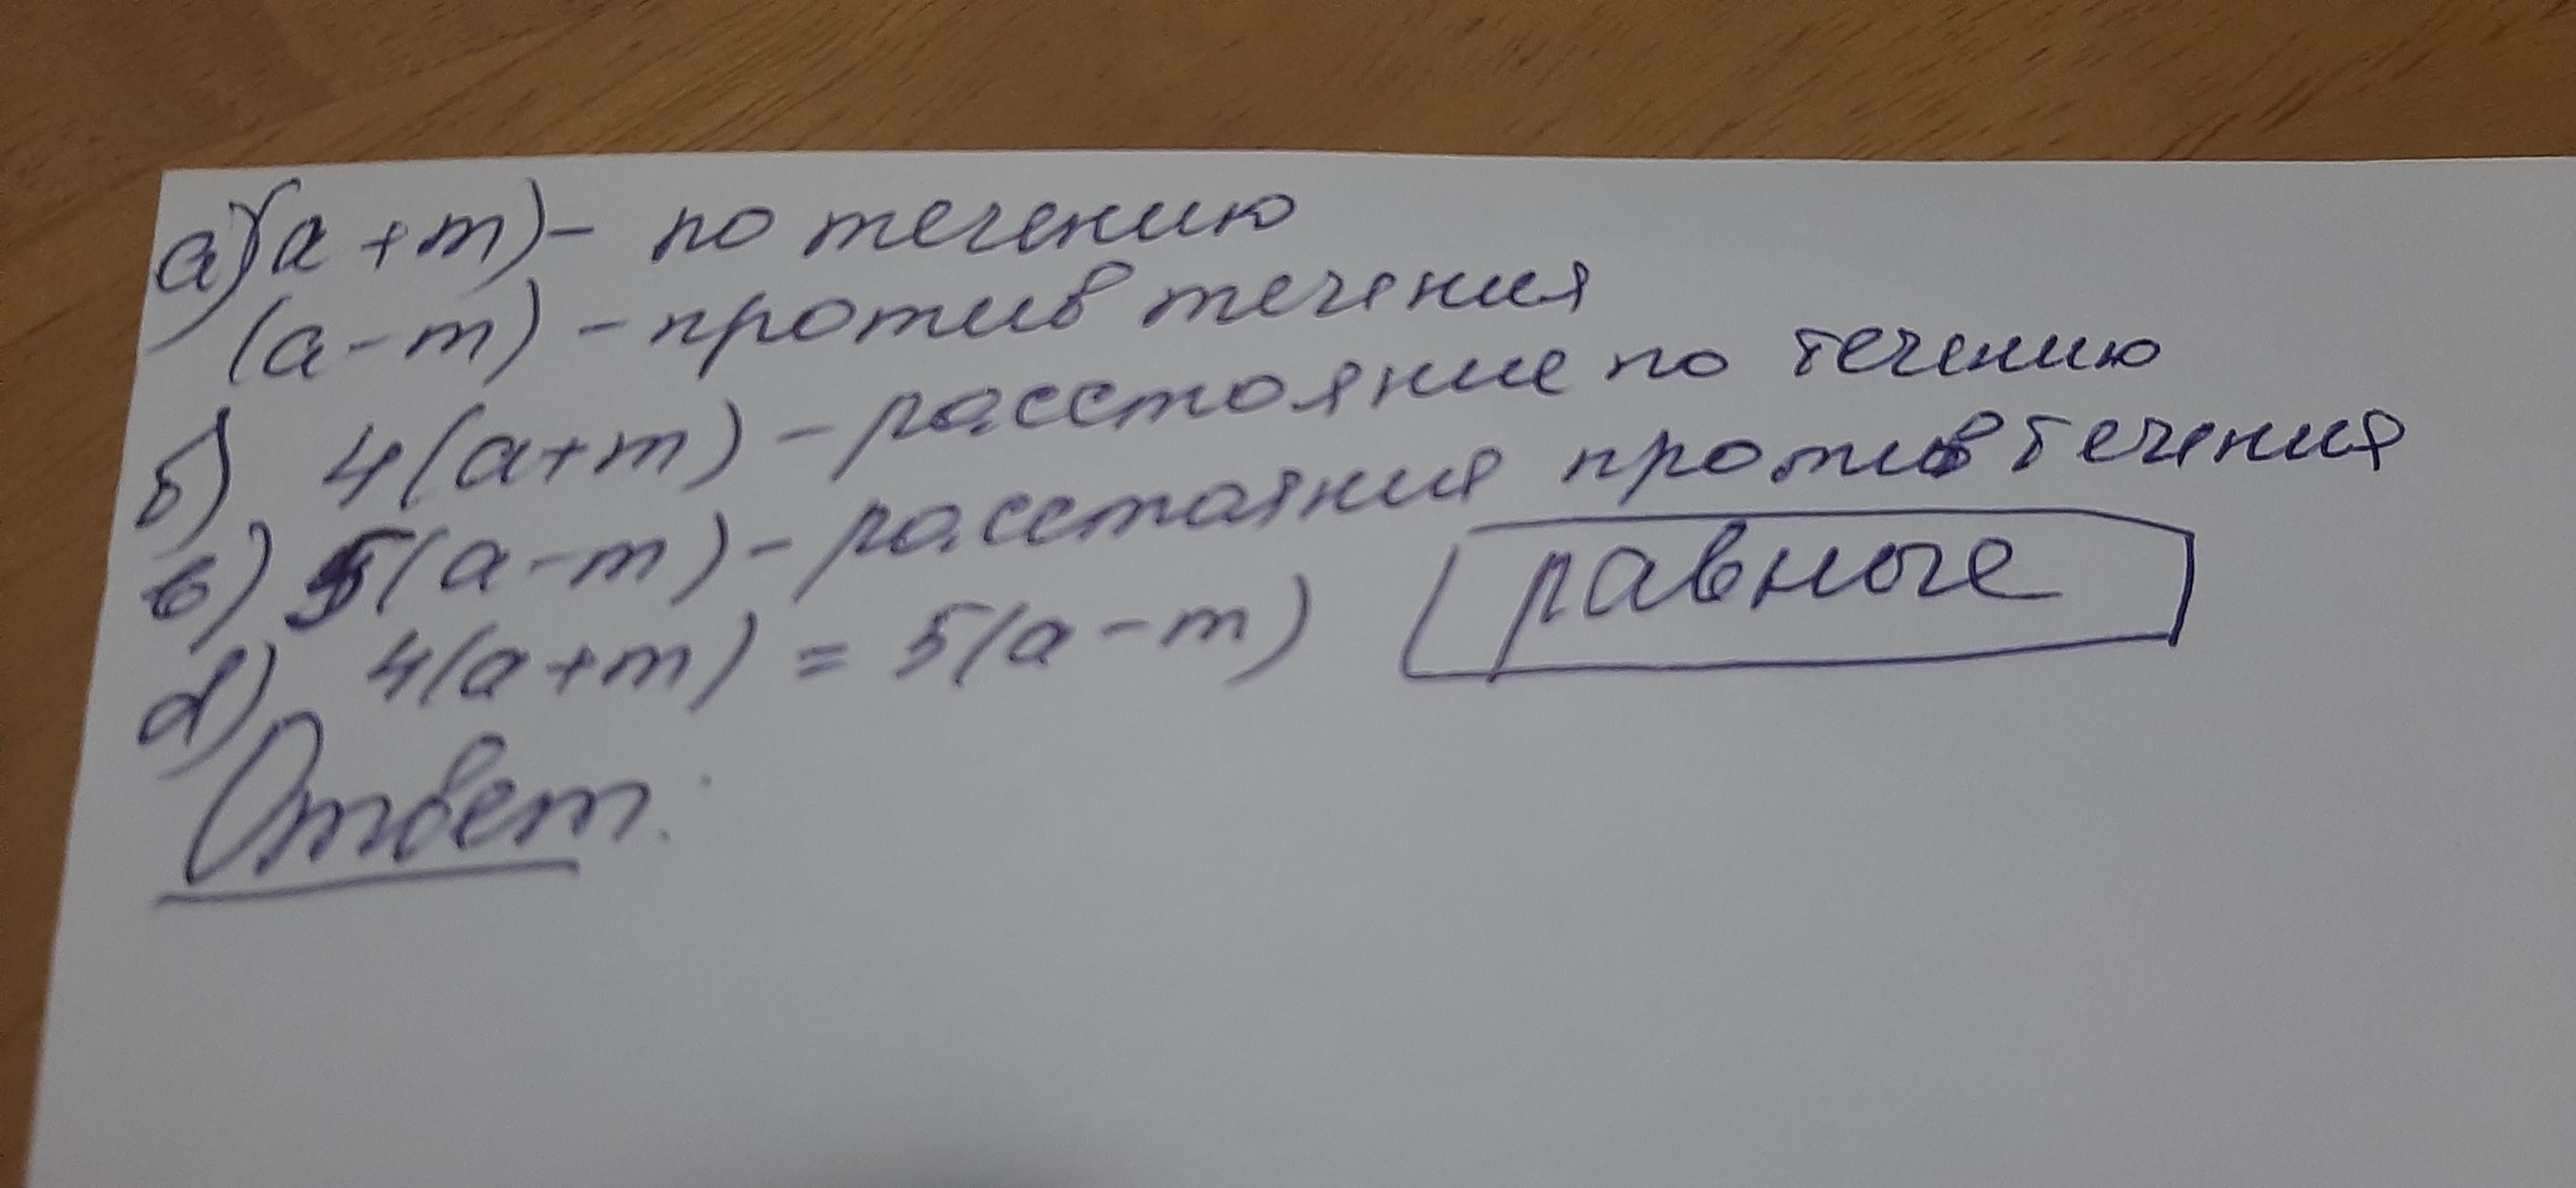 а) (a + m) - по течению
(a - m) - против течения
б) 4(a+m) - расстояние по течению
в) 5(a - m) - расстаяния против течения
d) 4(a+m) = 5(a-m) равные
Ответ: